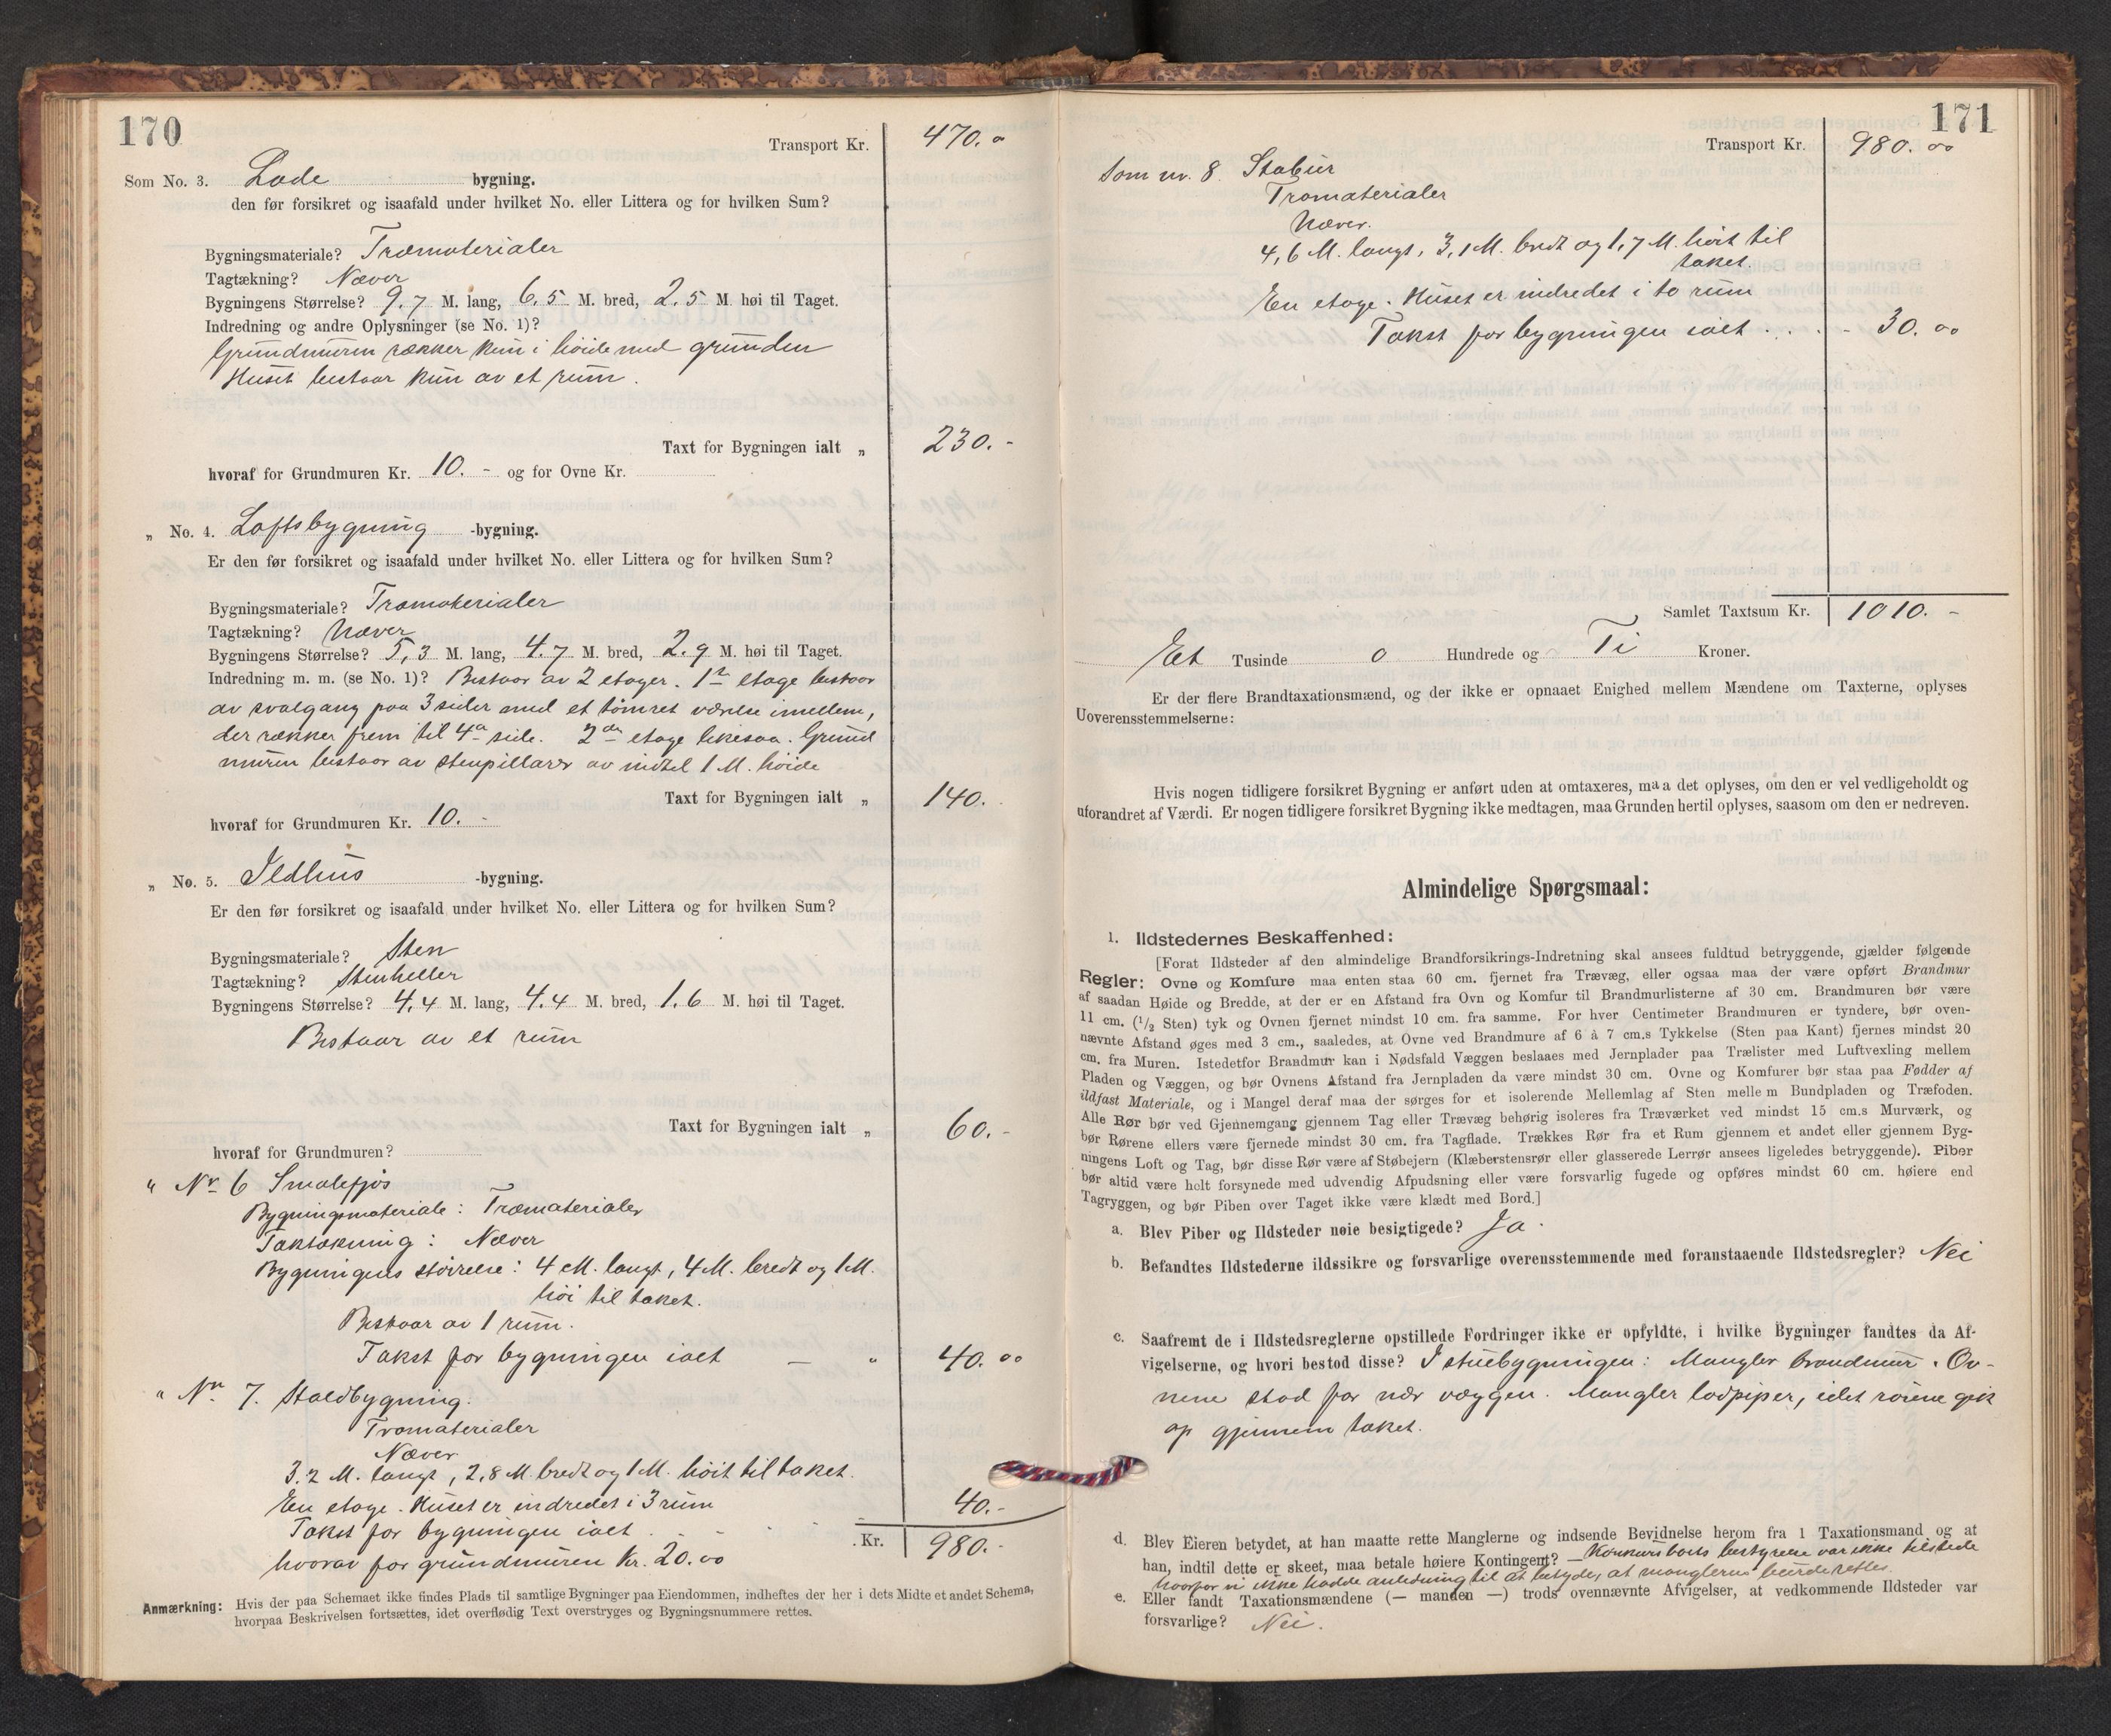 170
Transport Kr. 470. 0
Som No. 3. Lade bygning.
den før forsikret og isaafald under hvilket No. eller Littera og for hvilken Sum?
Bygningsmateriale? Træmaterialer
Tagtækning? Næver
Bygningens Størrelse? 9,7 M. lang, 6,5 M. bred, 2,5 M. høi til Taget.
Indredning og andre Oplysninger (se No. 1)?
Grundmuren rækker kun i høide med grunden
Huset bestaar kun av et rum.
Taxt for Bygningen ialt „ 230. -
hvoraf for Grundmuren Kr. 10. - og for Ovne Kr.
„ No. 4. Loftsbygning -bygning.
Er den før forsikret og isaafald under hvilket No. eller Littera og for hvilken Sum?
Bygningsmateriale? Træmaterialer
Tagtækning? Næver
Bygningens Størrelse? 5,3 M. lang, 4.7 M. bred, 2.9 M. høi til Taget.
Indredning m. m. (se No. 1)? Bestaar av 2 etager. 1ste etage bestaar
av svalgang paa 3 sider med et tømret værelse imellem,
der rækker frem til 4a side. 2den etage likesaa. Grund
muren bestaar av stenpillarer av indtil 1 M. høide
Taxt for Bygningen ialt „ 140.
hvoraf for Grundmuren Kr. 10. -
„ No. 5. Ildhus -bygning.
Er den før forsikret og isaafald under hvilket No. eller Littera og for hvilken Sum?
Bygningsmateriale? Sten
Tagtækning? Stenheller
Bygningens Størrelse? 4,4 M. lang, 4.4 M. bred, 1.6 M. høi til Taget.
Bestaar av et rum
Taxt for Bygningen ialt „ 60. -
hvoraf for Grundmuren?
„ Nr 6 Smalefjøs
Bygningsmateriale: Træmaterialer
Taktækning: Næver
Bygningens størrelse: 4 M. langt, 4 M. bredt og 1 M.
høi til taket.
Bestaar av 1 rum.
Takst for bygningen ialt — „ 40. 00
„ Nr. 7. Staldbygning.
Træmaterialer
Næver
3.2 M. langt, 2,8 M. bredt og 1 M. høit til taket.
En etage. Huset er indredet i 3 rum
Takst for bygningen ialt . - - . . 40. -
Kr. 980. -
hvorav for grundmuren Kr. 20.00
Anmærkning: Hvis der paa Schemaet ikke findes Plads til samtlige Bygninger paa Eiendommen, indheftes der her i dets Midte et andet Schema,
hvorpaa Beskrivelsen fortsættes, idet overflødig Text overstryges og Bygningsnummere rettes.
171
Transport Kr. 980. 00
Som nr. 8 Stabur
Træmaterialer
Næver.
4,6 M. langt, 3,1 M. bredt og 1,7 M. høit til
taket.
En etage. Huset er indredet i to rum
Takst for bygningen ialt . . . - 30. 00
Samlet Taxtsum Kr. 1010. -
Et Tusinde 0 Hundrede og Ti Kroner.
Er der flere Brandtaxationsmænd, og der ikke er opnaaet Enighed mellem Mændene om Taxterne, oplyses
Uoverensstemmelserne:
Hvis nogen tidligere forsikret Bygning er anført uden at omtaxeres, maa det oplyses, om den er vel vedligeholdt og
uforandret af Værdi. Er nogen tidligere forsikret Bygning ikke medtagen, maa Grunden hertil oplyses, saasom om den er nedreven.
Almindelige Spørgsmaal:
1. Ildstedernes Beskaffenhed:
[Forat Ildsteder af den almindelige Brandforsikrings-Indretning skal ansees fuldtud betryggende, gjælder følgende
Regler: Ovne og Komfure maa enten staa 60 cm. fjernet fra Trævæg, eller ogsaa maa der være opført Brandmur
af saadan Høide og Bredde, at der er en Afstand fra Ovn og Komfur til Brandmurlisterne af 30 cm. Brandmuren bør være
11 cm. (1/2 Sten) tyk og Ovnen fjernet mindst 10 cm. fra samme. For hver Centimeter Brandmuren er tyndere, bør oven-
nævnte Afstand øges med 3 cm., saaledes, at Ovne ved Brandmure af 6 à 7 cm.s Tykkelse (Sten paa Kant) fjernes mindst 20
cm. fra Muren. Istedetfor Brandmur kan i Nødsfald Væggen beslaaes med Jernplader paa Trælister med Luftvexling mellem
Pladen og Væggen, og bør Ovnens Afstand fra Jernpladen da være mindst 30 cm. Ovne og Komfurer bør staa paa Fødder af
ildfast Materiale, og i Mangel deraf maa der sørges for et isolerende Mellemlag af Sten mellem Bundpladen og Træfoden.
Alle Rør bør ved Gjennemgang gjennem Tag eller Trævæg behørig isoleres fra Træværket ved mindst 15 cm.s Murværk, og
bør Rørene ellers være fjernede mindst 30 cm. fra Tagflade. Trækkes Rør fra et Rum gjennem et andet eller gjennem Byg-
ningens Loft og Tag, bør disse Rør være af Støbejern (Klæberstensrør eller glasserede Lerrør ansees ligeledes betryggende). Piber
bør altid være helt forsynede med udvendig Afpudsning eller være forsvarlig fugede og opføres mindst 60 cm. høiere end
Tagryggen, og bør Piben over Taget ikke være klædt med Bord.]
a. Blev Piber og Ildsteder nøie besigtigede? Ja.
b. Befandtes Ildstederne ildssikre og forsvarlige overensstemmende med foranstaaende Ildstedsregler? Nei
c. Saafremt de i Ildstedsreglerne opstillede Fordringer ikke er opfyldte, i hvilke Bygninger fandtes da Af-
vigelserne, og hvori bestod disse? I stuebygningen: Mangler brandmur. Ov-
nene stod for nær væggen. Mangler lodpiper, idet rørene gik
op gjennem taket.
d. Blev Eieren betydet, at han maatte rette Manglerne og indsende Bevidnelse herom fra 1 Taxationsmand og at
han, indtil dette er skeet, maa betale høiere Kontingent? — Konkursboets bestyrelse var ikke tilstede
hvorfor vi ikke hadde anledning til at betyde, at manglerne burde rettes.
e. Eller fandt Taxationsmændene (— manden —) trods ovennævnte Afvigelser, at vedkommende Ildsteder var
forsvarlige? Nei.